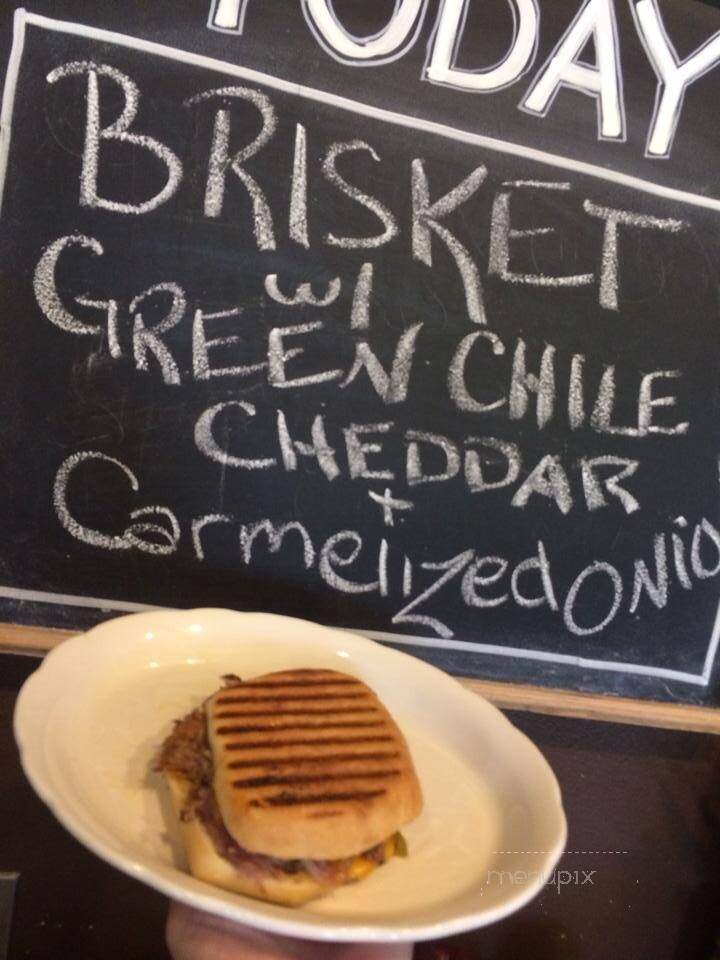 TODAY
BRISKET
w/
GREEN CHILE
CHEDDAR
+
Carmelized ONIO
menupix